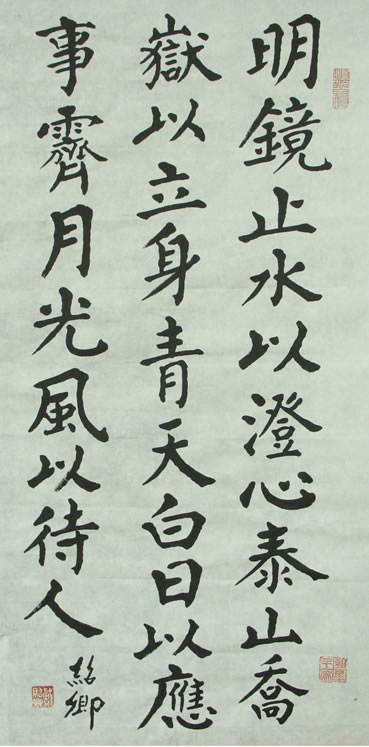 明鏡止水以澄心泰山喬
嶽以立身青天白日以應
事霽月光風以待人
紹卿